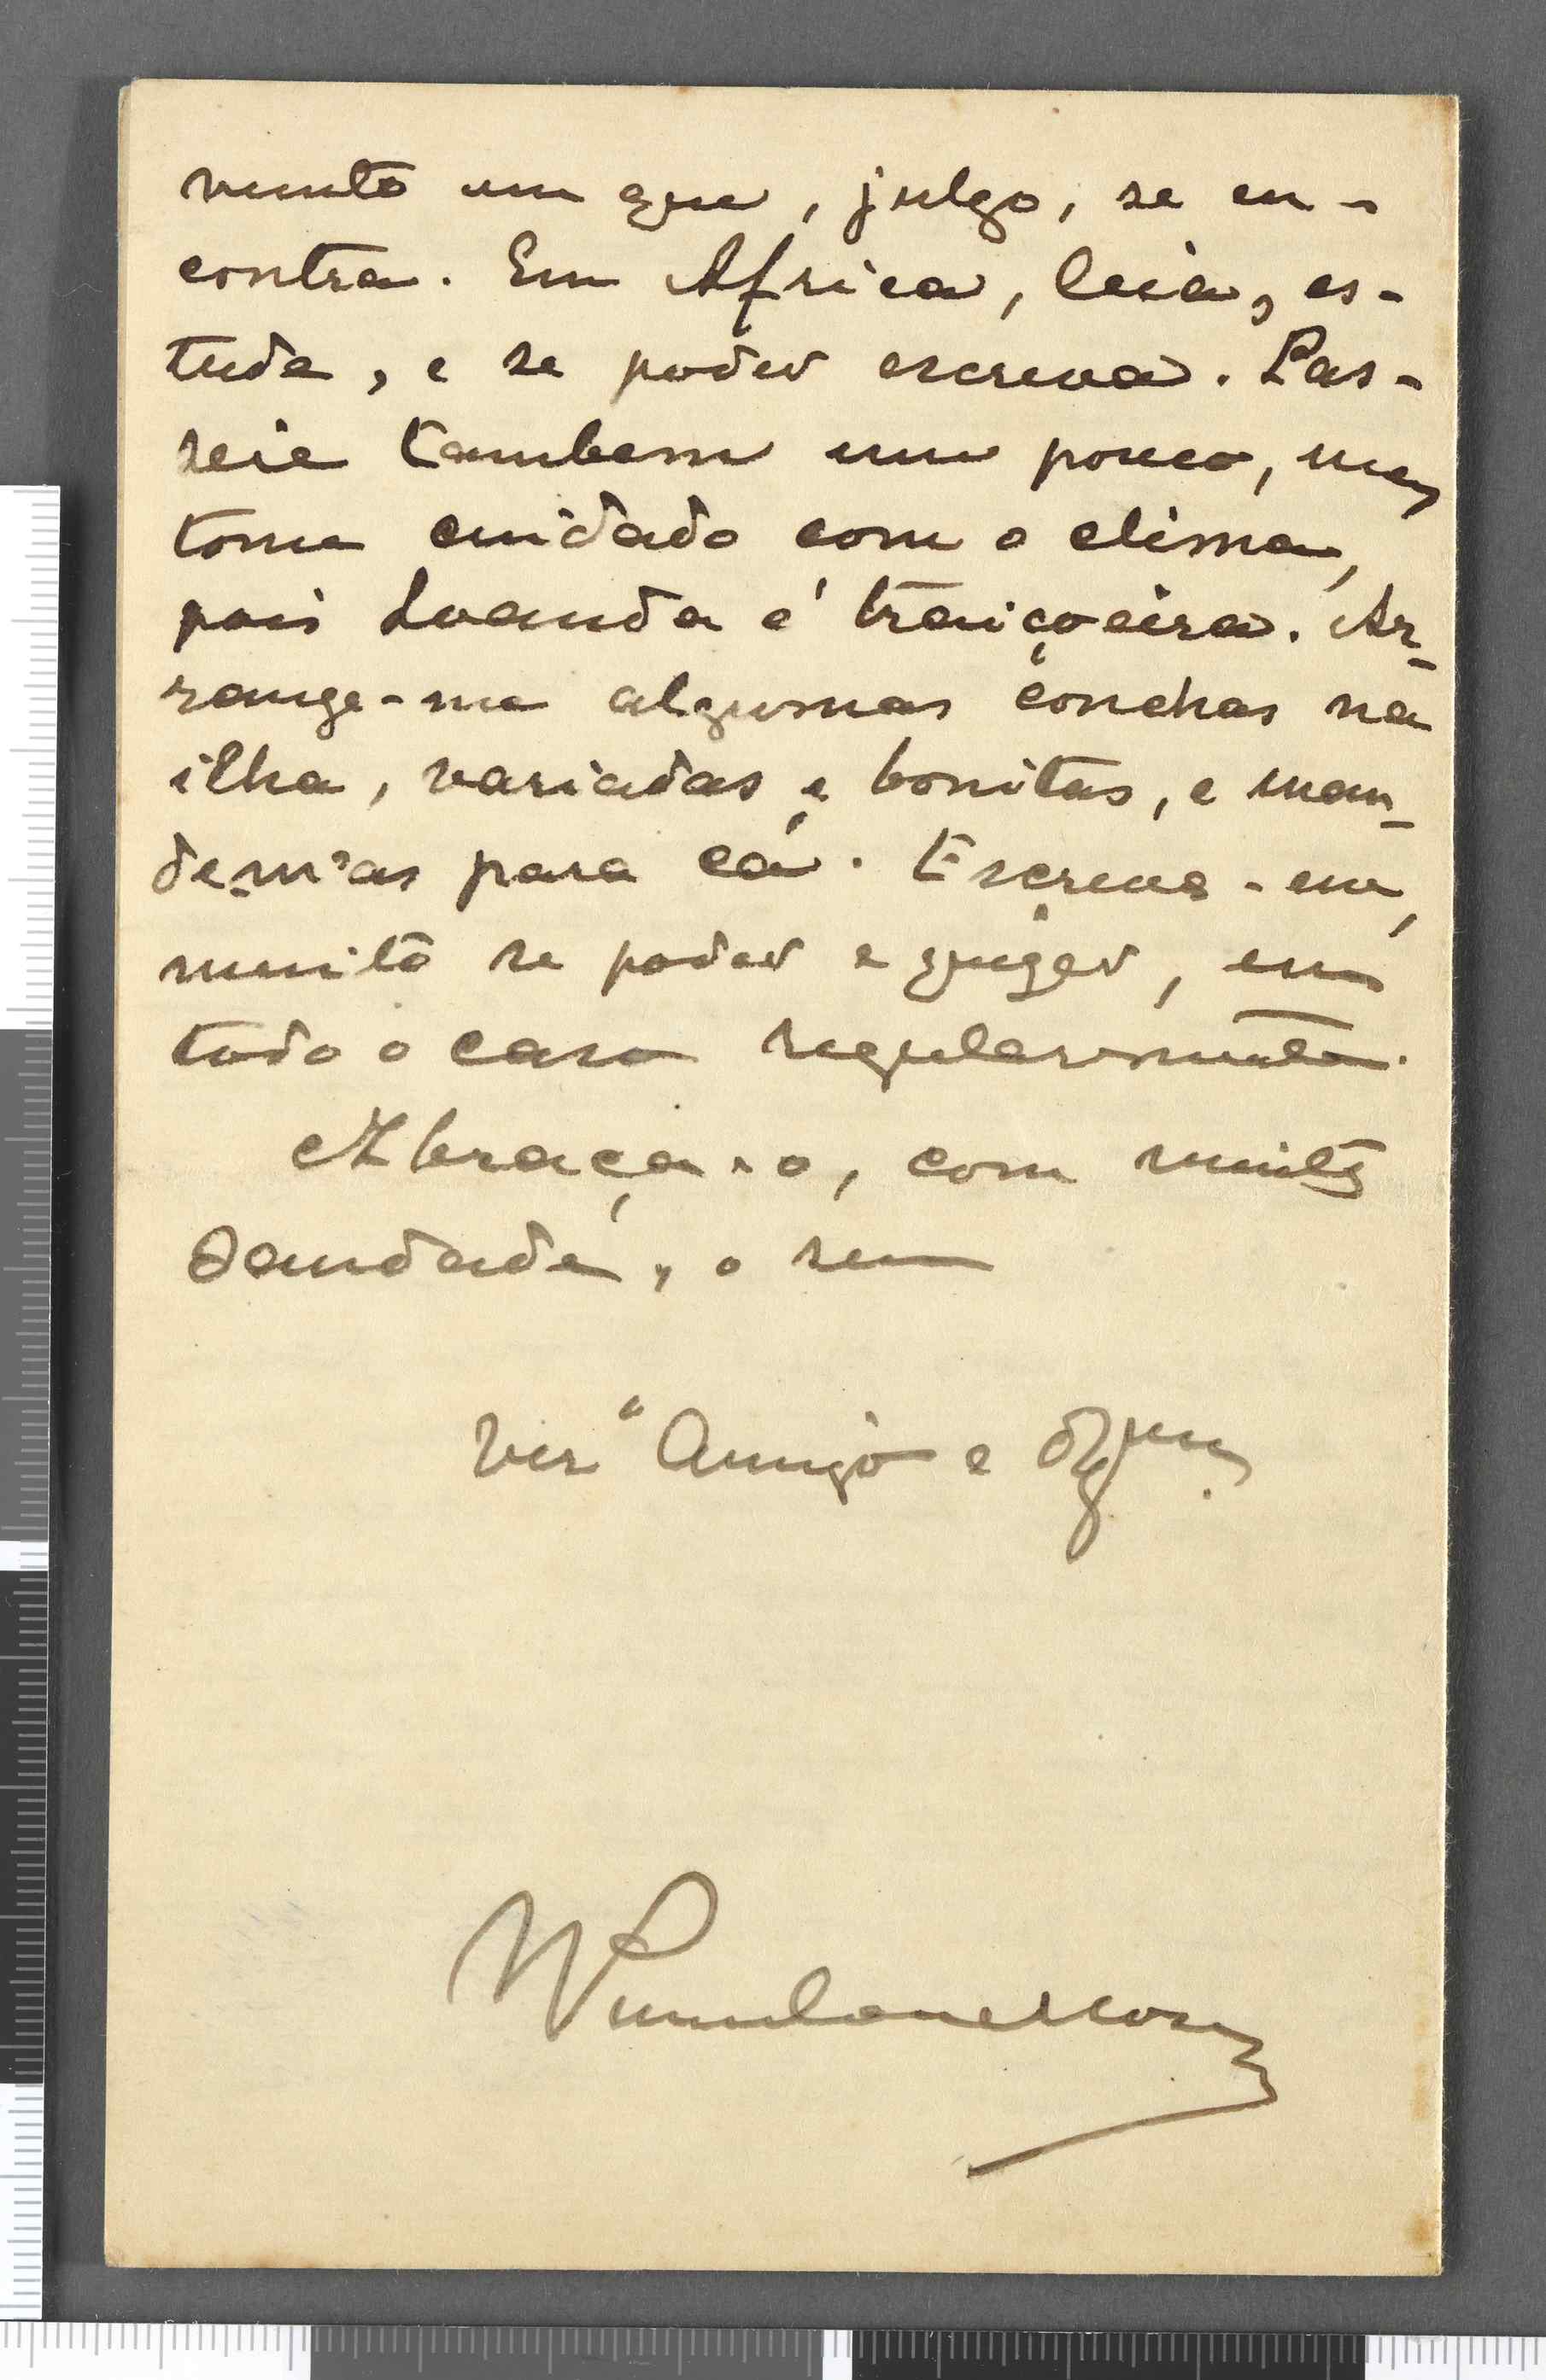 mento em que, julgo, se en-
contra. Em Africa, leia, es-
tude, e se poder escreva. Pas-
seie tambem um pouco, mas
tome cuidado com o clima,
pois Loanda é traiçoeira. Ar-
range-me algumas conchas na
ilha, variadas e bonitas, e man-
de-m'as para cá. Escreva-me,
muito se poder e quizer, em
todo o caso regularmente.
Abraça-o, com muita
Saudade, o seu
Verº Amigo e